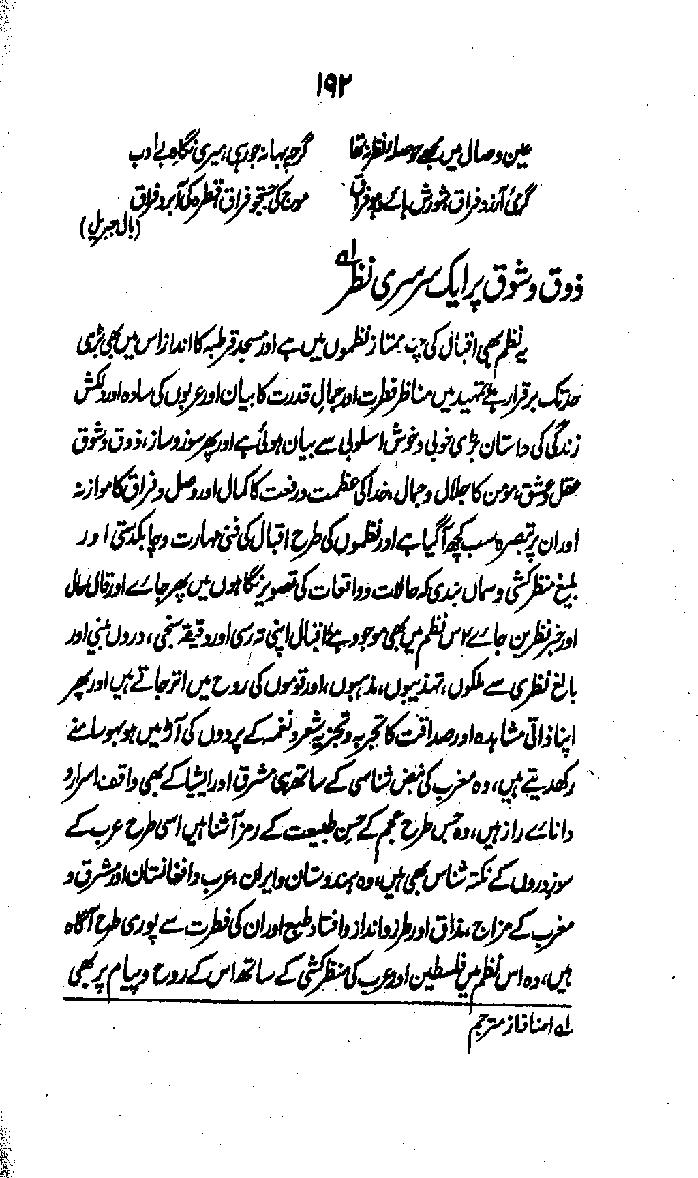 ۱۹۲
عین وصال میں مجھے حوصلۂ نظر نہ تھا گرچہ بہانہ جو رہی، میری نگاہ بے ادب
گرمئ آرزو فراق، شورش ہائے و ہو فراق موج کی جستجو فراق قطرہ کی آبرو فراق
(بال جبریل)
ذوق و شوق پر ایک سرسری نظر ؎۱
یہ نظم بھی اقبال کی چند ممتاز نظموں میں ہے اور مسجد قرطبہ کا انداز اس میں بھی بڑی
حد تک برقرار ہے تمہید میں مناظر فطرت اور جمال قدرت کا بیان اور عربوں کی سادہ اور دلکش
زندگی کی داستان بڑی خوبی و خوش اسلوبی سے بیان ہوئی ہے اور پھر سوز و ساز، ذوق و شوق
عقل و عشق، مومن کا جلال و جمال، خدا کی عظمت و رفعت کا کمال اور وصل و فراق کا موازنہ
اور ان پر تبصرہ سب کچھ آگیا ہے اور نظموں کی طرح اقبال کی فنی مہارت و چابکدستی اور
بلیغ منظر کشی و سماں بندی کہ حالات و واقعات کی تصویر نگاہوں میں پھر جائے اور قال حال
اور خبر نظر بن جائے اس نظم میں بھی موجود ہے اقبال اپنی تہ رسی اور دقیقہ سنجی، دروں بینی اور
بالغ نظری سے ملکوں، تہذیبوں، مذہبوں، اور قوموں کی روح میں اتر جاتے ہیں اور پھر
اپنا ذاتی مشاہدہ اور صداقت کا تجربہ و تجزیہ شعر و نغمہ کے پردوں کی آڑ میں ہو بہو سامنے
رکھدیتے ہیں، وہ مغرب کی نبض شناسی کے ساتھ ہی مشرق اور ایشیا کے بھی واقف اسرار و
دانائے راز ہیں، وہ جس طرح عجم کے حسن طبیعت کے رمز آشنا ہیں اسی طرح عرب کے
سوز دروں کے نکتہ شناس بھی ہیں، وہ ہندوستان و ایران، عرب و افغانستان اور مشرق و
مغرب کے مزاج، مذاق اور طرز و انداز و افتاد طبع اور ان کی فطرت سے پوری طرح آگاہ
ہیں، وہ اس نظم میں فلسطین اور عرب کی منظر کشی کے ساتھ اس کے روح و پیام پر بھی
؎۱ اضافہ از مترجم